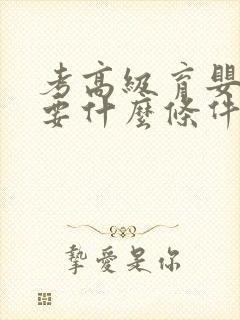 考高級育嬰
要什麼條件
摯愛是你